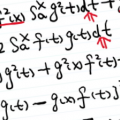 f²(x) ∫ₐˣ g²(t)dt +
2 ∫ₐˣ f(t)g(t)dt
g²(t) + g²(x)f²(t) -
g(t) - g(x)f(t)]²